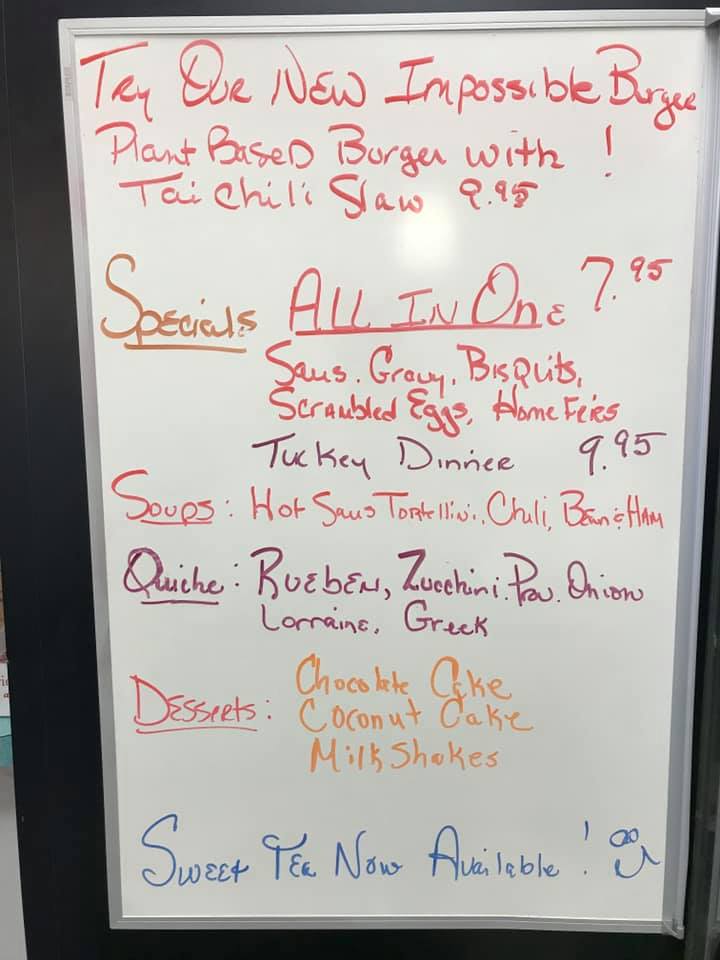 Try Our New Impossible Burger
Plant Based Burger with !
Tai Chili Slaw 9.95
Specials All In One 7.95
Saus. Gravy, Bisquits,
Scrambled Eggs, Home Fries
Turkey Dinner 9.95
Soups: Hot Saus Tortellini, Chili, Bean & Ham
Quiche: Rueben, Zucchini. Prov. Onion
Lorraine, Greek
Desserts: Chocolate Cake
Coconut Cake
Milk Shakes
Sweet Tea Now Available!